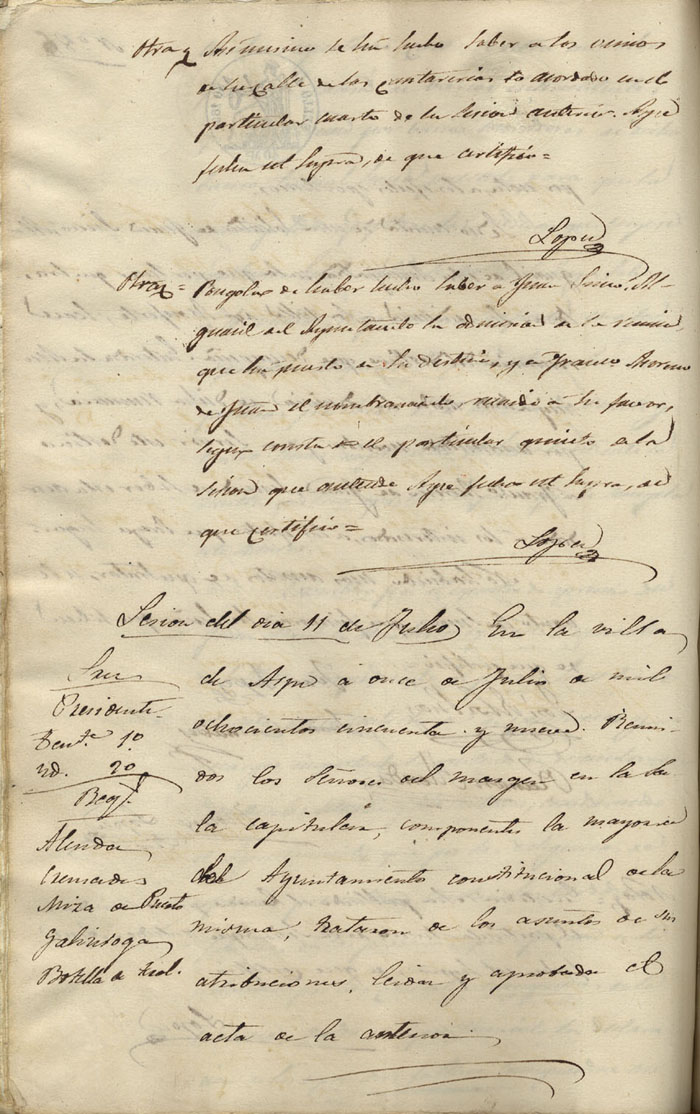 Otra= Asimismo se ha hecho saber a los vecinos
de la calle de las Cantarerias lo acordado en el
particular cuarto de la sesion anterior. Aspe
fecha ut supra, de que certifico=
Lopez
Otra= Pongola de haber hecho saber a Juan Al-
guacil del Ayuntamto la admision de la
que ha puesto en su destino, y a Franco Moreno
de Juan el nombramiento a su favor,
segun consta el particular quinto de la
sesion que antecede Aspe fecha ut supra, de
que certifico=
Lopez
Sesion del dia 11 de Julio, En la villa
de Aspe á once de Julio de mil
ochocientos cincuenta y nueve. Reuni-
dos los Señores del margen en la Sa-
la capitular, componentes la mayoria
del Ayuntamiento constitucional de la
misma, trataron de los asuntos de sus
atribuciones, leida y aprobada el
acta de la anterior.
Sres
Presidente
Tente 1º
Id. 2º
Regs.
Alenda
Cremades
Mira de Puerto
Galinsoga
Botella de